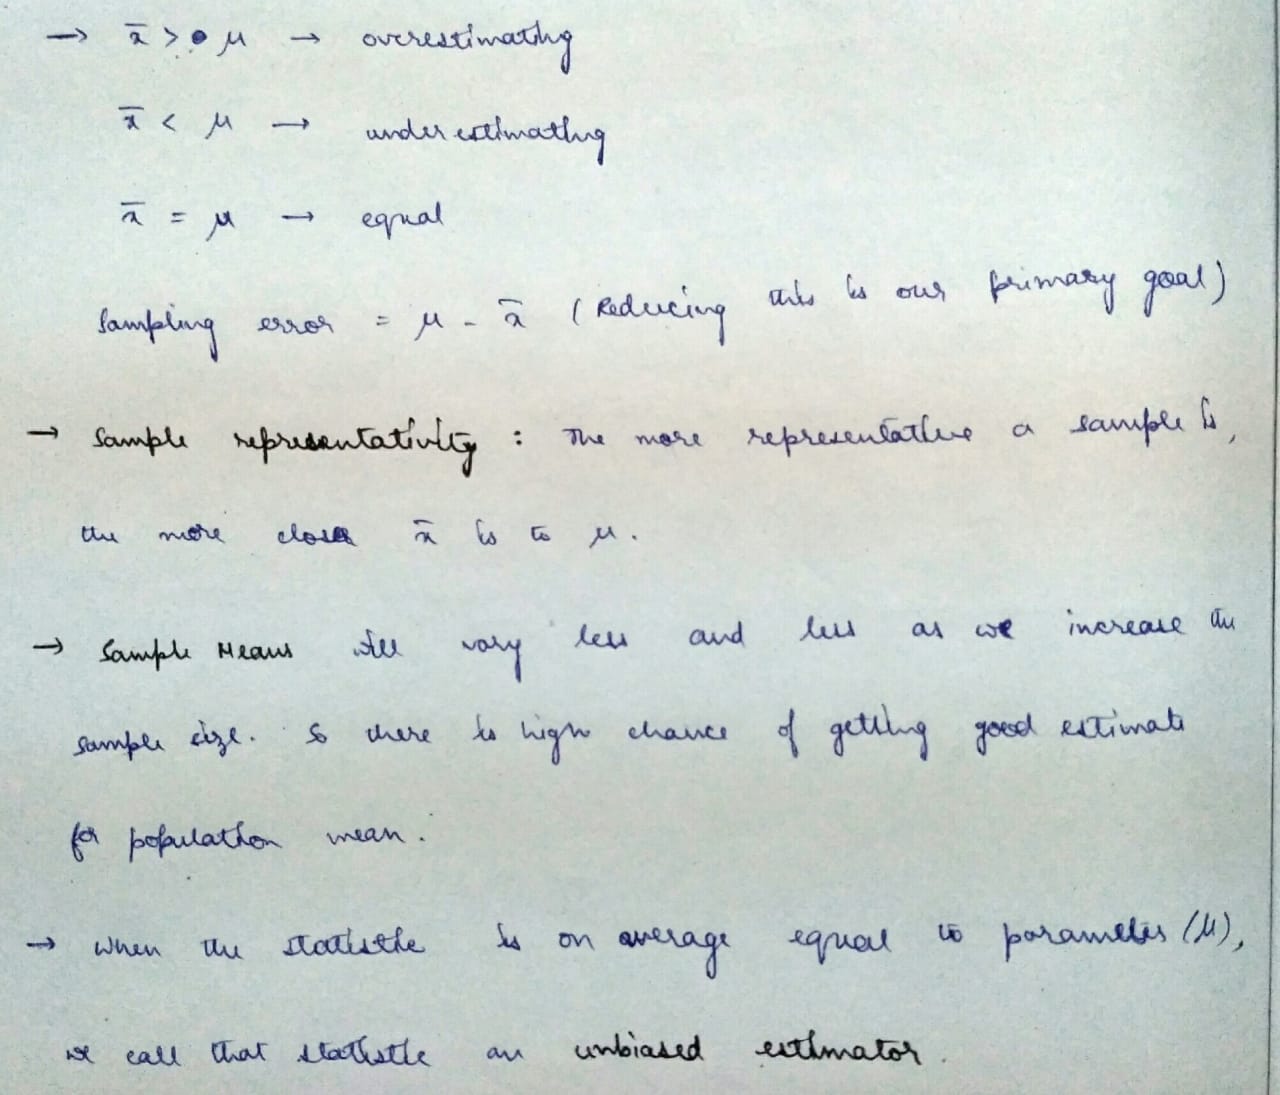 → x̄ > μ → overestimating
x̄ < μ → underestimating
x̄ = μ → equal
Sampling error = μ - x̄ (Reducing this is our primary goal)
→ Sample representativity : The more representative a sample is,
the more close x̄ is to μ.
→ Sample Means will vary less and less as we increase the
sample size. So there is high chance of getting good estimate
for population mean.
→ When the statistic is on average equal to parameter (μ),
we call that statistic an unbiased estimator.